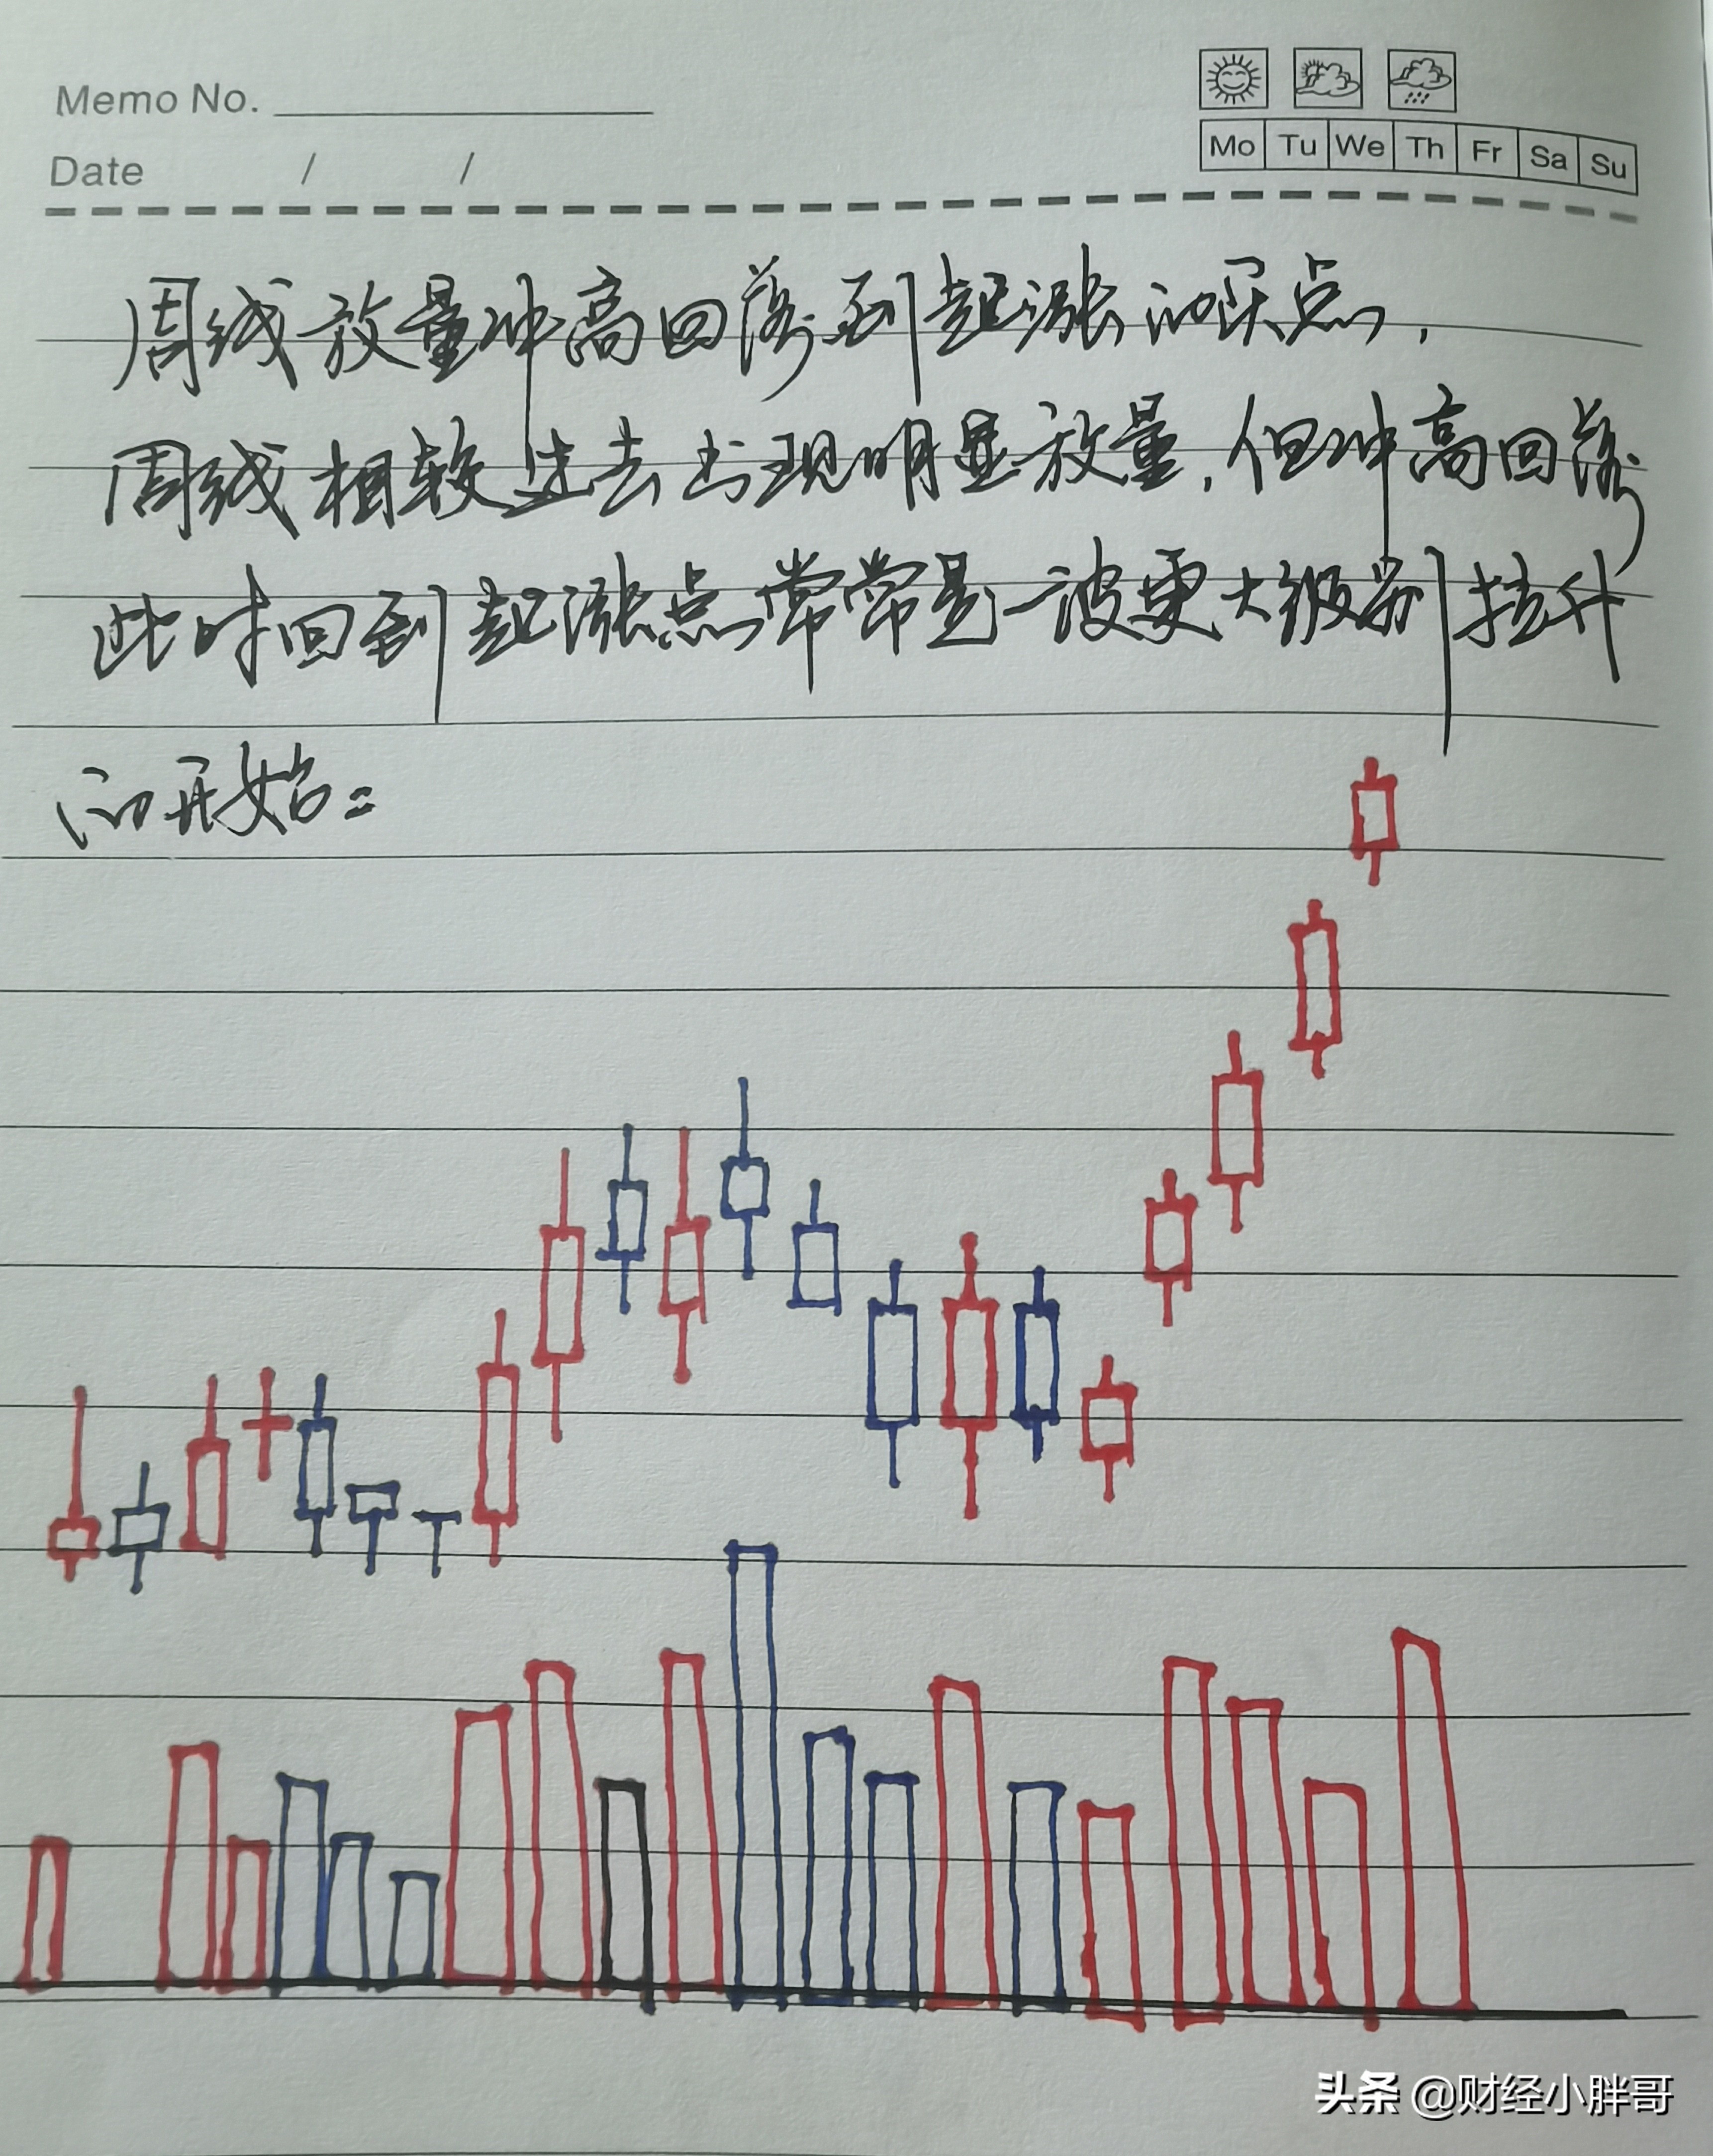 Memo No.
Date / /
Mo Tu We Th Fr Sa Su
周线放量冲高回落到起涨的买点,
周线相较过去出现明显放量,但冲高回落
此时回到起涨点常常是一波更大级别拉升
的开始:
头条 @财经小胖哥